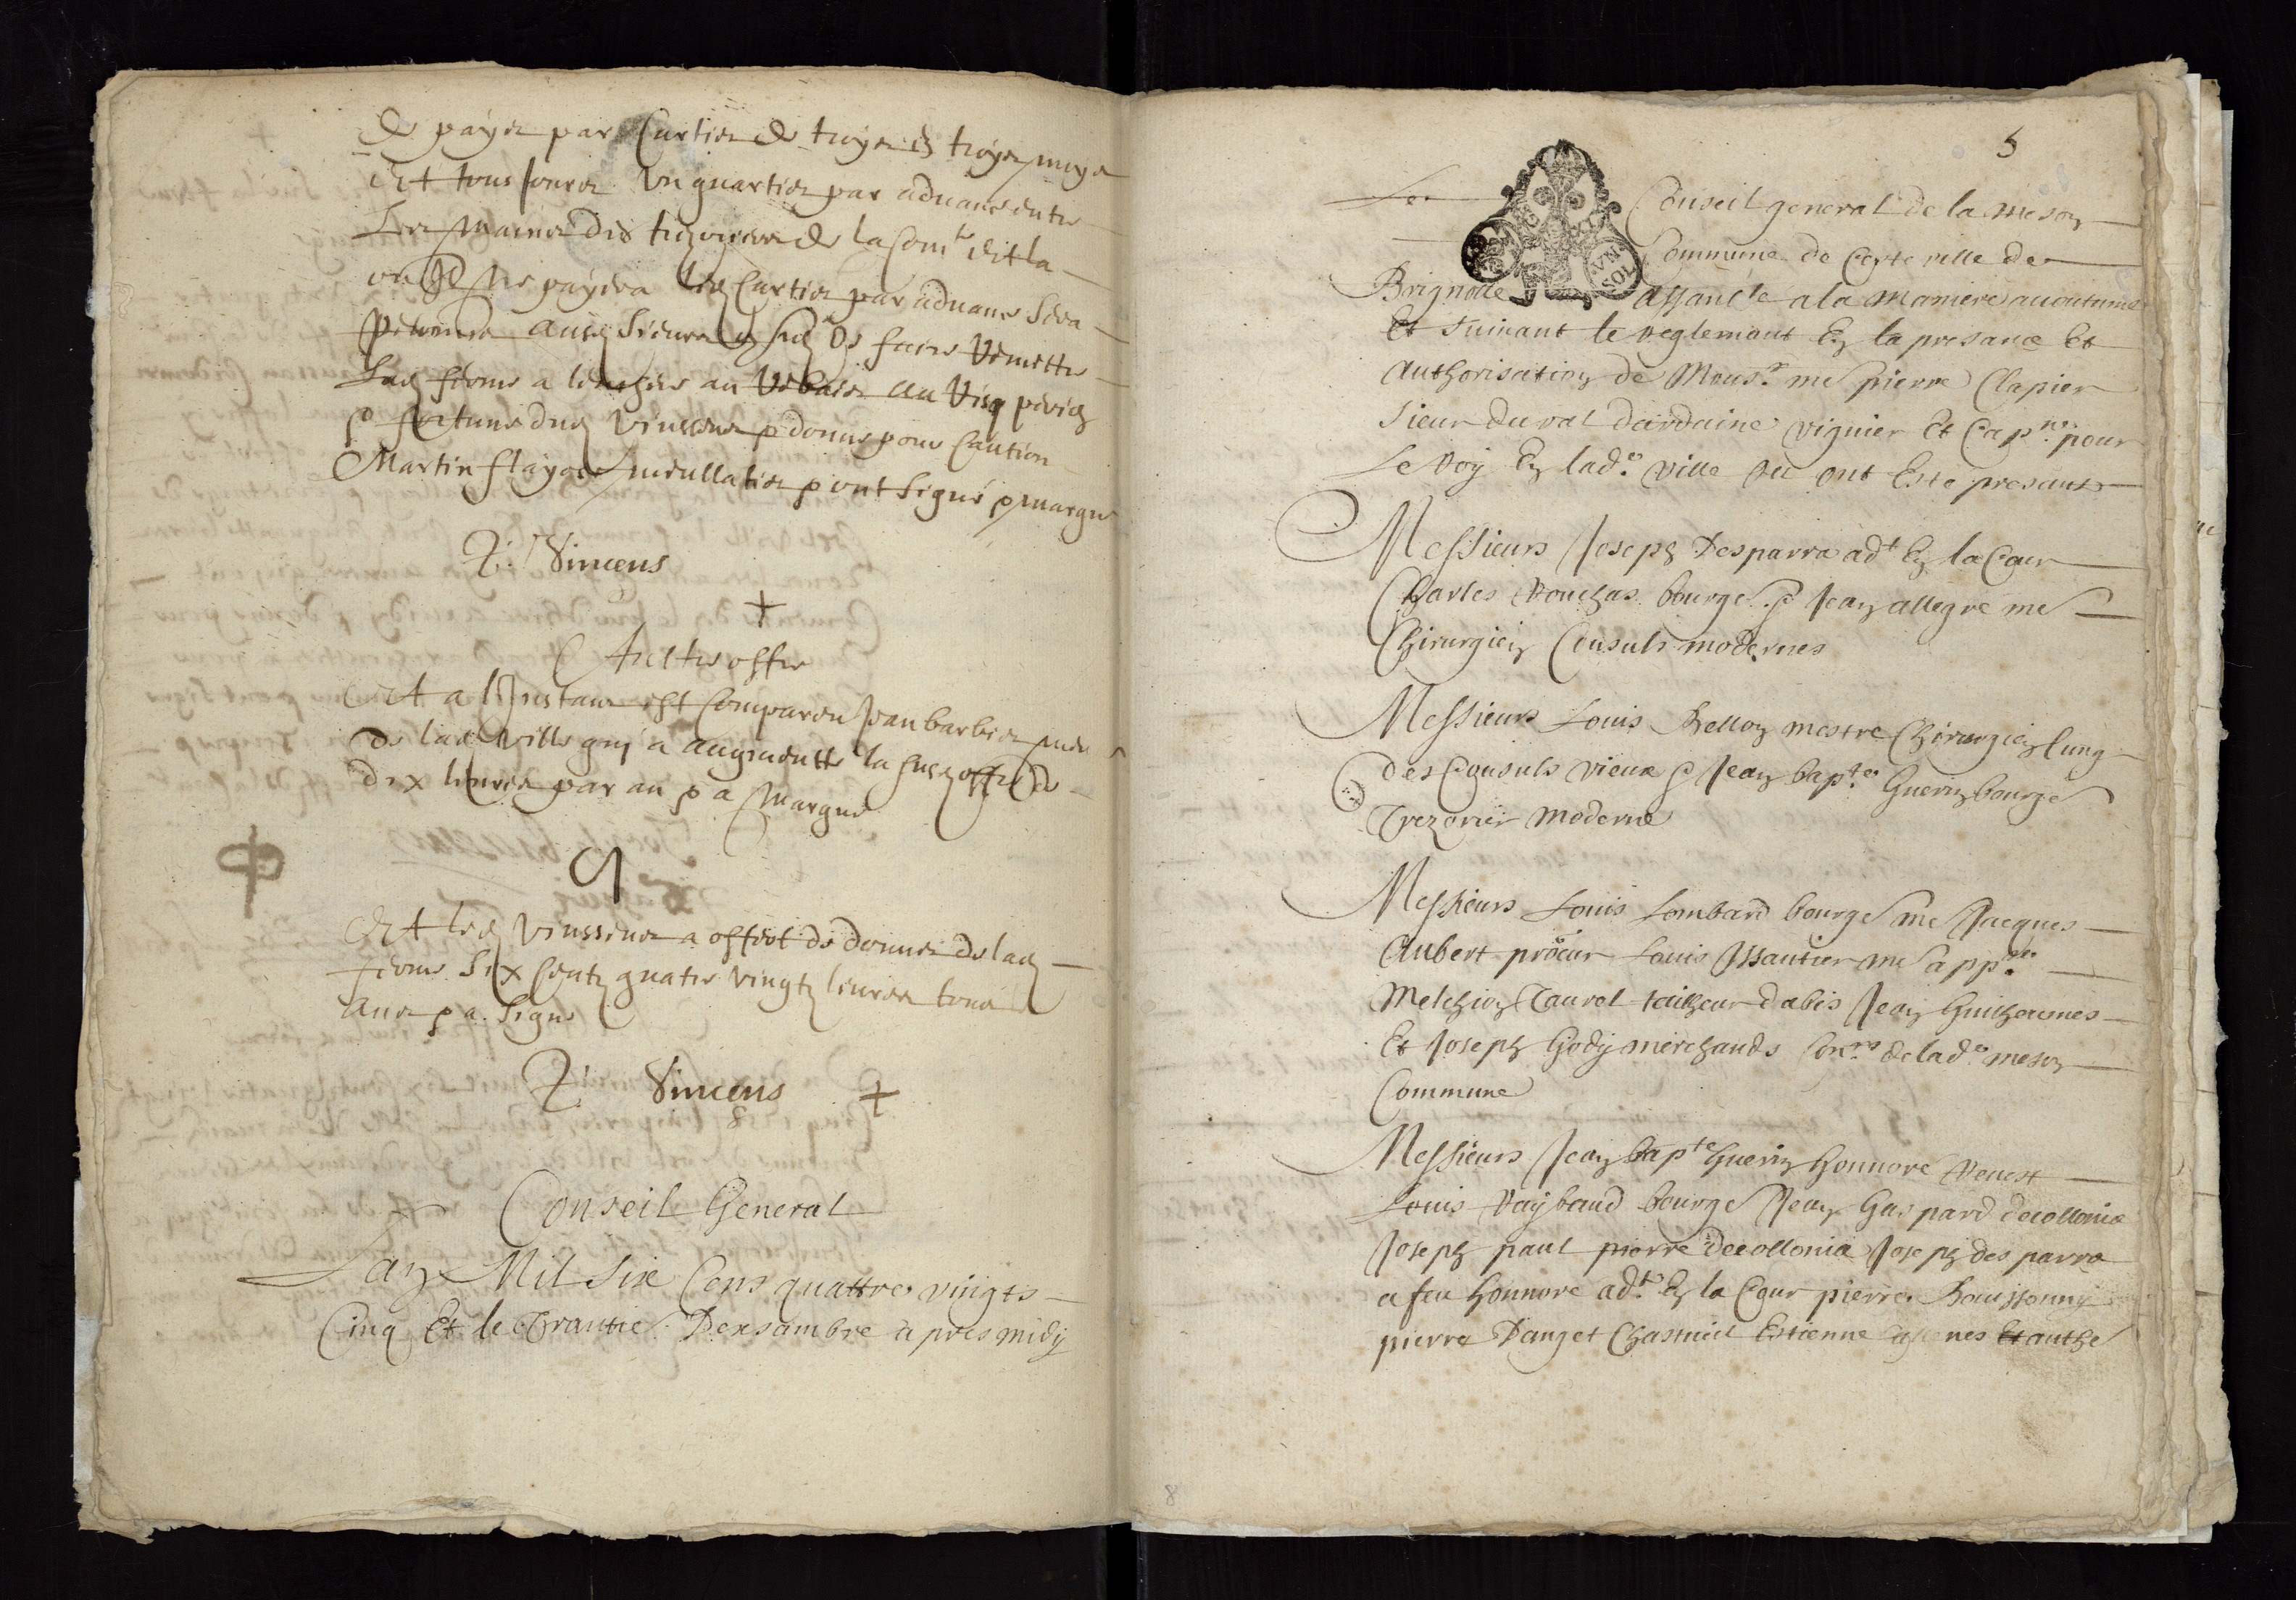 de payer par Cartier de troys en troys moys
Et tousjours un quartier par advance entre
Les mains des trezoriers de la Com.te Et la
ou Il ne payera led Cartier par advance sera
permis ausd sieurs de faire remettre
lad ferme a lenchere au rebais au risq perils
& fortune dud Vinssens & donne pour Caution
Martin flayosc mullatier & ont signé & marqué
Vincens
+
Aultre offre
Et a linstant est Comparu Jean barbier
de lad Ville quy a augmentté la susd offre de
dix livres par an & a marqué
Et led Vinssens a offert de donner de lad
ferme Six Cents quatre vingts livres tous
ans & a signé
Vincens +
Conseil General
Lan Mil Six Cens quattre vingts
Cinq Et le Trantie Dexsambre apres midy
5
Le Conseil general de la meson
Commune de Ceste ville de
Brignolle assanble a la maniere acoutume
Et suivant le reglemant En la presance Et
Authorisation de Mons.r me pierre Clapier
Sieur du val dardaine viguier Et Cap.ne pour
Le Roy En lad.e ville ou ont Este presants
Messieurs Joseph Desparra ad.t En la Cour
Charles Rouchas bourge & Jean allegre me
Chirurgien Consuls modernes
Messieurs Louis Bellon mestre Chirurgien lung
des Consuls vieux & Jean bap.te Guerin bourge
Trezorier moderne
Messieurs Louis Lombard bourge me Jacques
Aubert procur Louis Issautier me app.re
Melchion Taurel tailheur dabis Jean Guilheaumes
Et Joseph Gody merchands Con.rs de lad.e meson
Commune
Messieurs Jean bap.te Guerin honnore Venest
Louis Raybaud bourge Jean Gaspard decollonia
Joseph paul pierre decollonia Joseph desparra
a feu honnore ad.ts En la Cour pierre Boussonny
pierre Dauget Chasteuil Estienne Et anthe
8